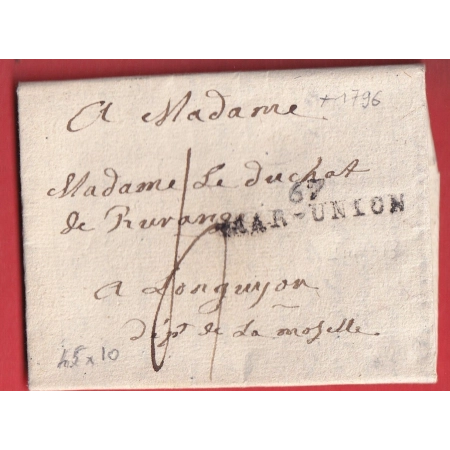 A Madame
+ 1796
Madame Le duchat
67
de Rurange
MAR-UNION
a Longuyon
dépt de La moselle
45 x 10